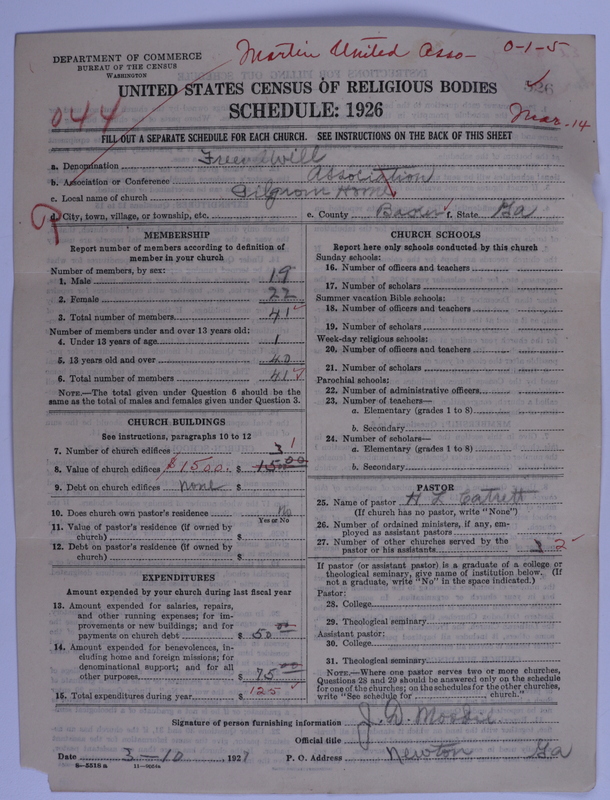 Martin United Asso- 0-1-5
DEPARTMENT OF COMMERCE
BUREAU OF THE CENSUS
WASHINGTON
UNITED STATES CENSUS OF RELIGIOUS BODIES
SCHEDULE: 1926
044
Mar-14
FILL OUT A SEPARATE SCHEDULE FOR EACH CHURCH. SEE INSTRUCTIONS ON THE BACK OF THIS SHEET
a. Denomination Freewill
b. Association or Conference Association
c. Local name of church Pilgrom Home
d. City, town, village, or township, etc. e. County Baker f. State Ga
MEMBERSHIP
Report number of members according to definition of
member in your church
Number of members, by sex:
1. Male 19
2. Female 22
3. Total number of members 41
Number of members under and over 13 years old:
4. Under 13 years of age 1
5. 13 years old and over 40
6. Total number of members 41
NOTE.—The total given under Question 6 should be
same as the total of males and females given under Question 3.
CHURCH BUILDINGS
See instructions, paragraphs 10 to 12
7. Number of church edifices 3 1
8. Value of church edifices $1500. $ 1500
9. Debt on church edifices None $
10. Does church own pastor's residence No
Yes or No
11. Value of pastor's residence (if owned by
church) $
12. Debt on pastor's residence (if owned by
church) $
EXPENDITURES
Amount expended by your church during last fiscal year
13. Amount expended for salaries, repairs,
and other running expenses; for im-
provements or new buildings; and for
payments on church debt $ 50 00
14. Amount expended for benevolences, in-
cluding home and foreign missions; for
denominational support; and for all
other purposes $ 75 00
15. Total expenditures during year $ 125
CHURCH SCHOOLS
Report here only schools conducted by this church
Sunday schools:
16. Number of officers and teachers
17. Number of scholars
Summer vacation Bible schools:
18. Number of officers and teachers
19. Number of scholars
Week-day religious schools:
20. Number of officers and teachers
21. Number of scholars
Parochial schools:
22. Number of administrative officers
23. Number of teachers—
a. Elementary (grades 1 to 8)
b. Secondary
24. Number of scholars—
a. Elementary (grades 1 to 8)
b. Secondary
PASTOR
25. Name of pastor H L Catrett
(If church has no pastor, write "None")
26. Number of ordained ministers, if any, em-
ployed as assistant pastors
27. Number of other churches served by the
pastor or his assistants 3 2
If pastor (or assistant pastor) is a graduate of a college or
theological seminary, give name of institution below. (If
not a graduate, write "No" in the space indicated.)
Pastor:
28. College
29. Theological seminary
Assistant pastor:
30. College
31. Theological seminary
NOTE.—Where one pastor serves two or more churches,
Questions 28 and 29 should be answered only on the schedule
for one of the churches; on the schedules for the other churches,
write "See schedule for church."
Signature of person furnishing information J. D.
Official title
Date 3-10, 1927 P. O. Address Newton Ga
8-5518 a 11-9004a